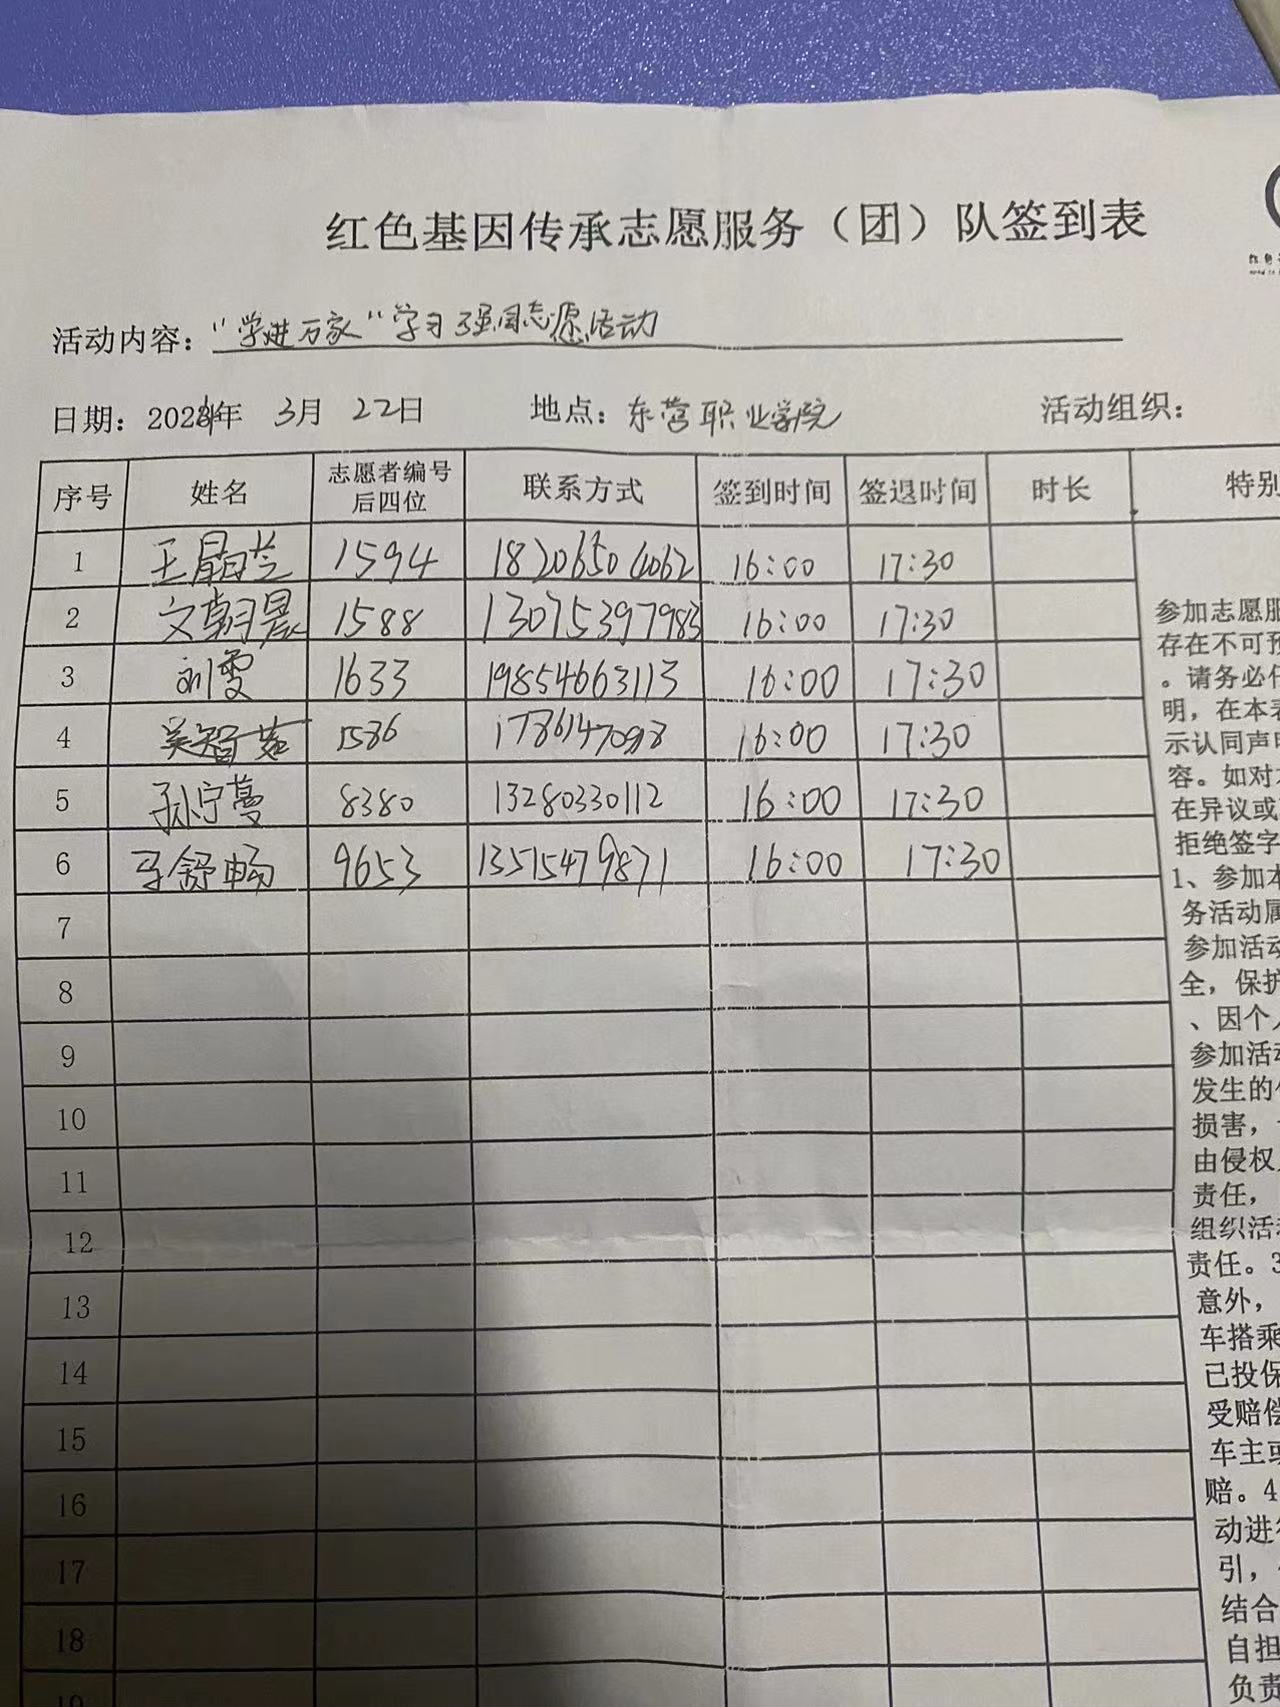 红色基因传承志愿服务（团）队签到表
活动内容："学进万家"学习强国志愿活动
日期：2024年 3月 22日 地点：东营职业学院 活动组织：
序号 姓名 志愿者编号后四位 联系方式 签到时间 签退时间 时长 特别
1 王晶芝 1594 18206504062 16:00 17:30
2 文朝晨 1588 13075397983 16:00 17:30
3 刘雯 1633 19854663113 16:00 17:30
4 吴智茹 1586 16:00 17:30
5 孙宁蔓 8380 13280330112 16:00 17:30
6 马舒畅 9653 13515479871 16:00 17:30
7
8
9
10
11
12
13
14
15
16
17
18
19
参加志愿服
存在不可预
。请务必仔
明，在本表
示认同声明
容。如对本
在异议或
拒绝签字
1、参加本
务活动属
参加活动
全，保护
、因个人
参加活动
发生的
损害，
由侵权人
责任，
组织活动
责任。3
意外，
车搭乘
已投保
受赔偿
车主或
赔。4
动进行
引，
结合
自担
负责